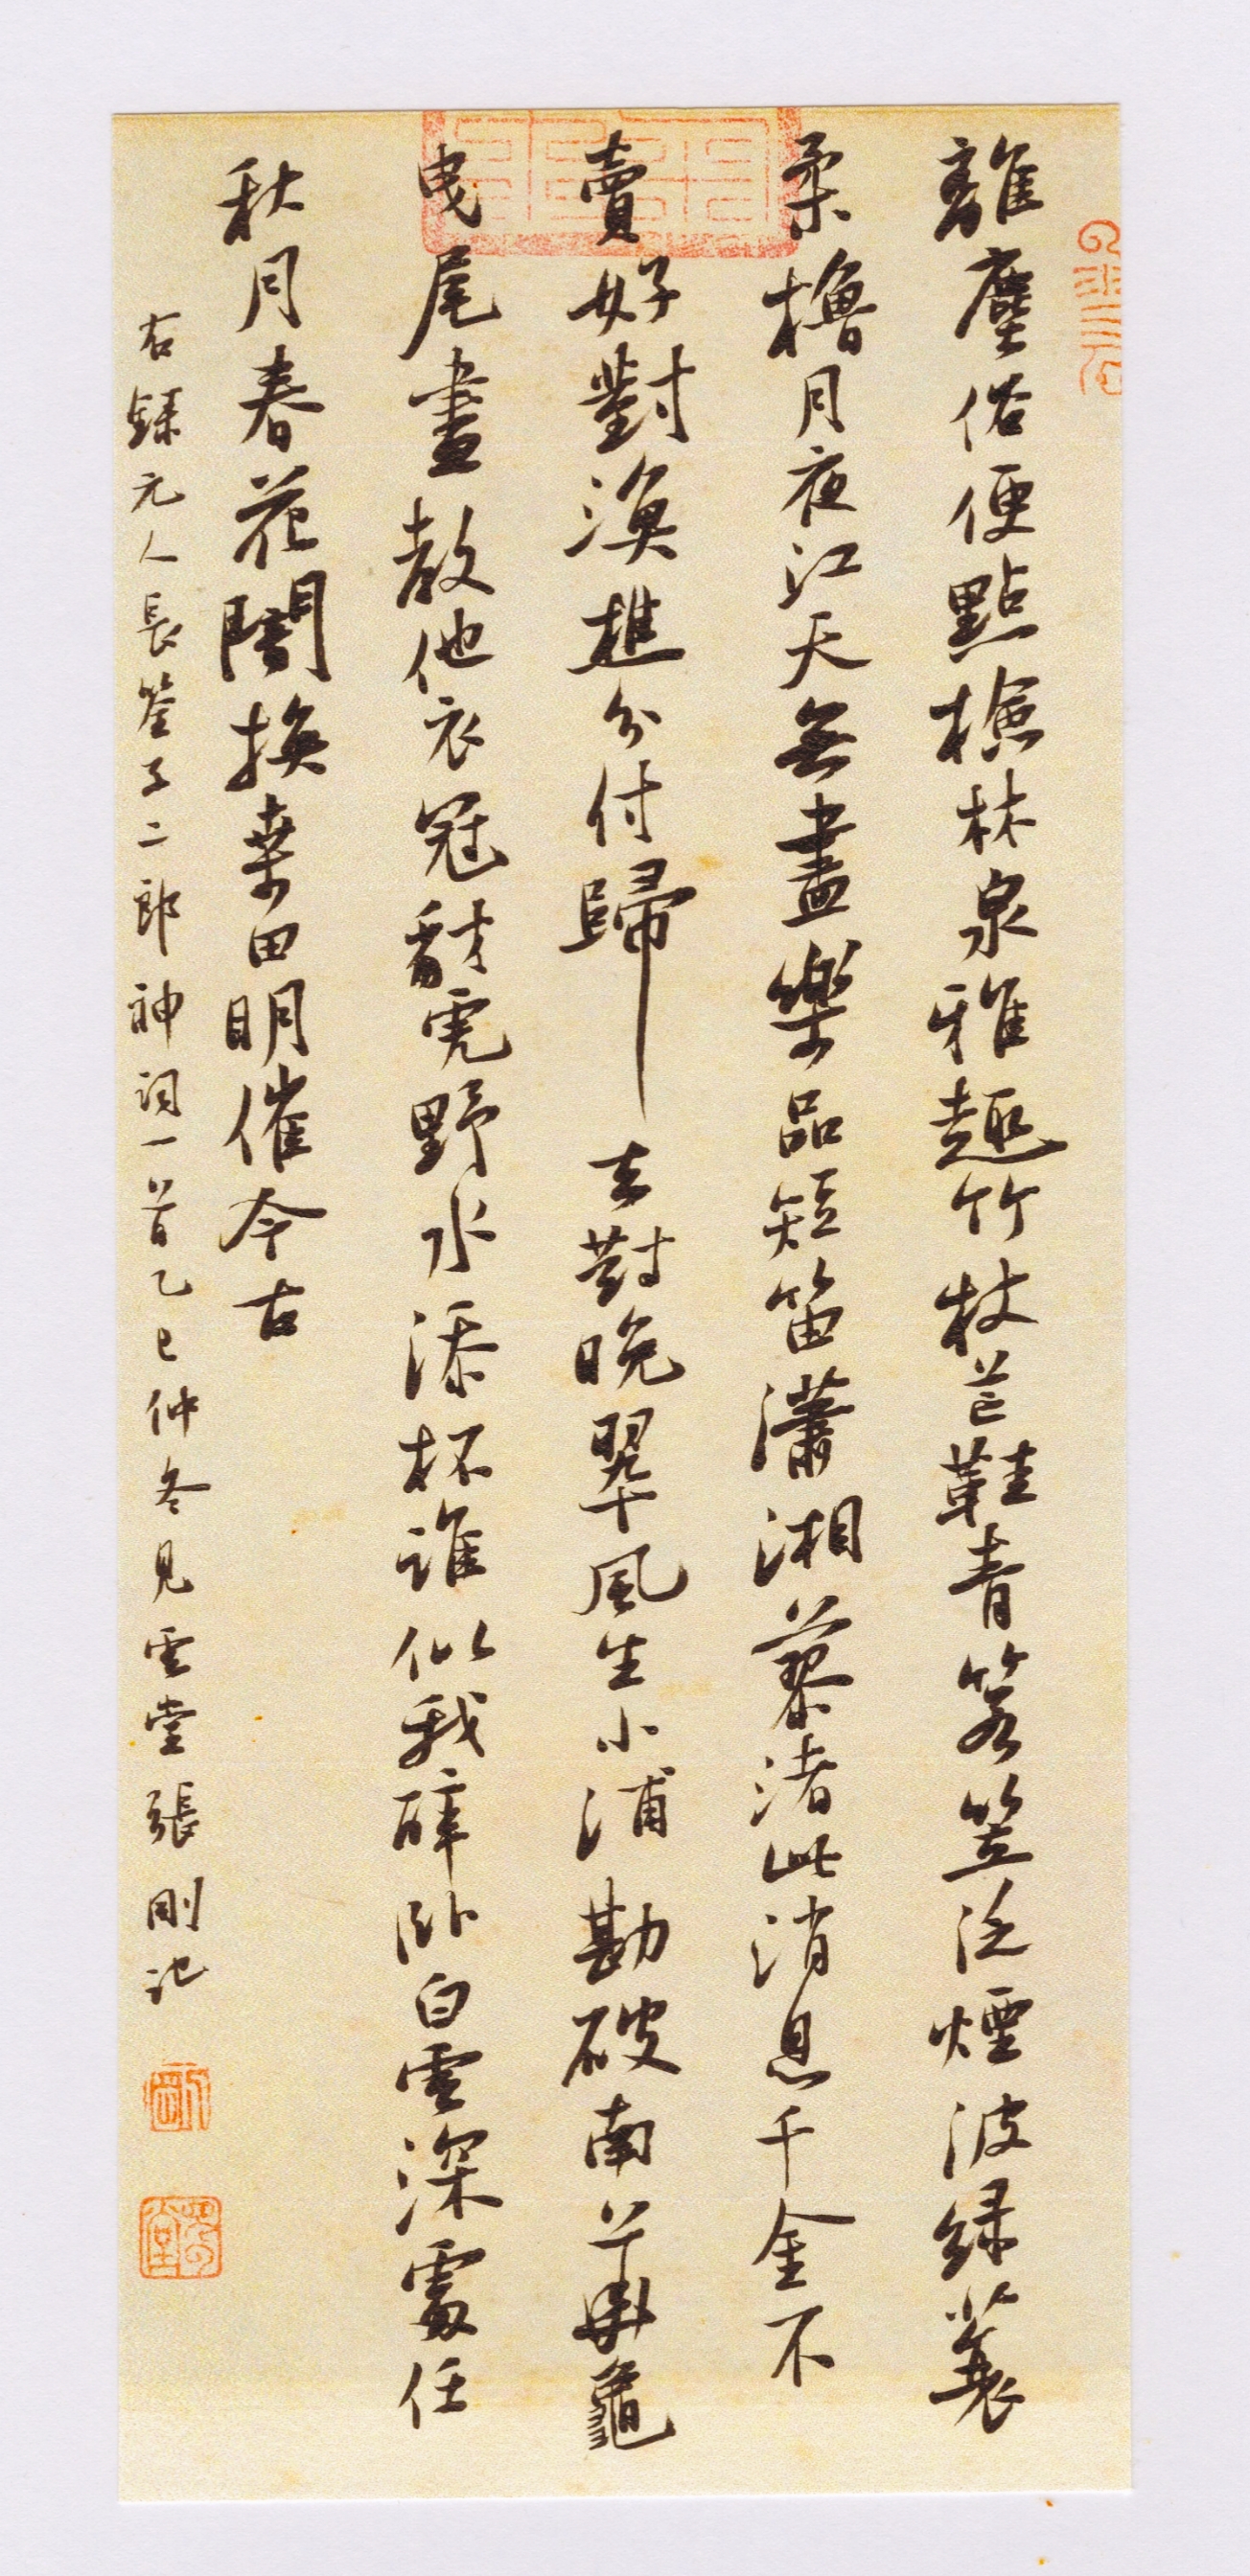 離塵俗便點檢林泉雅趣竹杖芒鞋青箬笠泛煙波綠蓑
柔櫓月夜江天無盡樂品短笛瀟湘蓼渚此消息千金不
賣好對漁樵分付歸去對晚翠風生小浦勘破南華龜
曳尾盡教他衣冠豺虎野水添杯誰似我醉臥白雲深處任
秋月春花闇換桑田明催今古
右錄元人長筌子二郎神詞一首乙巳仲冬見雲堂張剛記